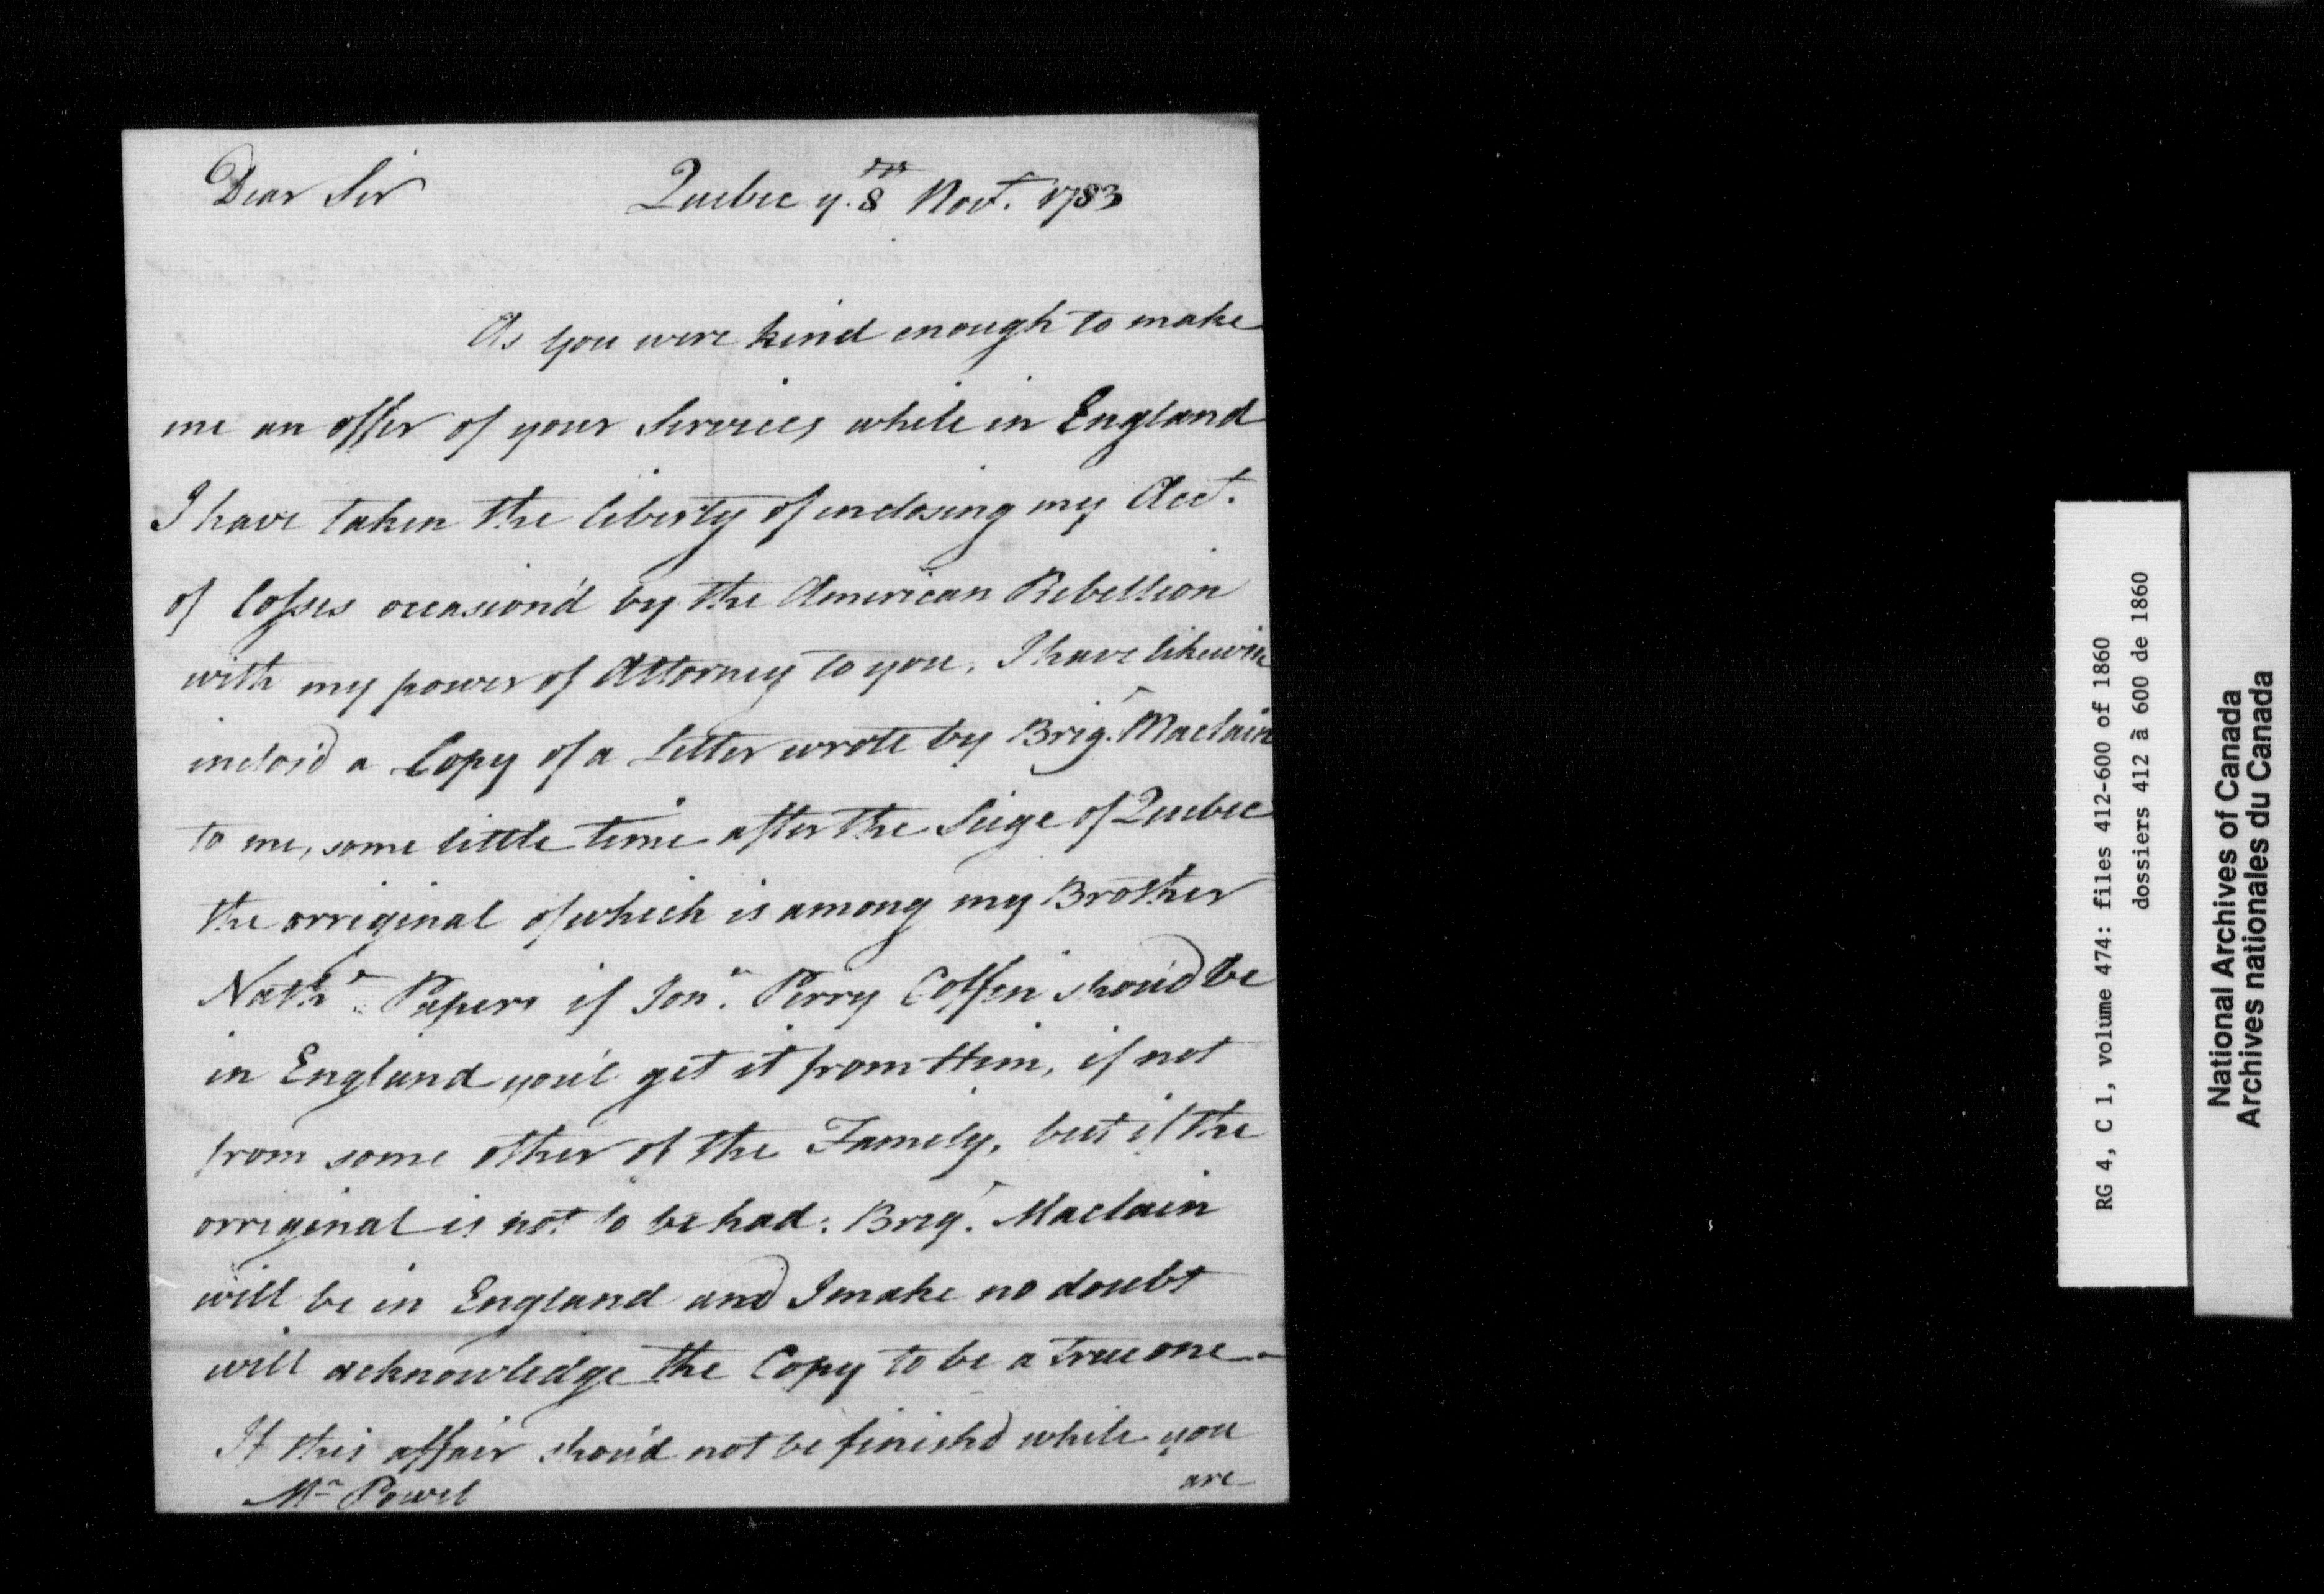 Dear Sir Quebec y. 8th Novr. 1783
As you were kind enough to make
me an offer of your Services while in England
I have taken the liberty of inclosing my Acct.
of Losses occasion'd by the American Rebellion
with my power of Attorney to you. I have likewise
inclos'd a Copy of a Letter wrote by Brigr. Maclain
to me, some little time after the Seige of Quebec
the orriginal of which is among my Brother
Nathl. Papers if Jon. Perry Coffin shou'd be
in England you'l get it from Him, if not
from some other of the Family, but if the
orriginal is not to be had. Brigr. Maclain
will be in England and I make no doubt
will acknowledge the Copy to be a true one.
If this affair shou'd not be finish'd while you
Mr. Powel are
RG 4, C 1, volume 474: files 412-600 of 1860
dossiers 412 à 600 de 1860
National Archives of Canada
Archives nationales du Canada